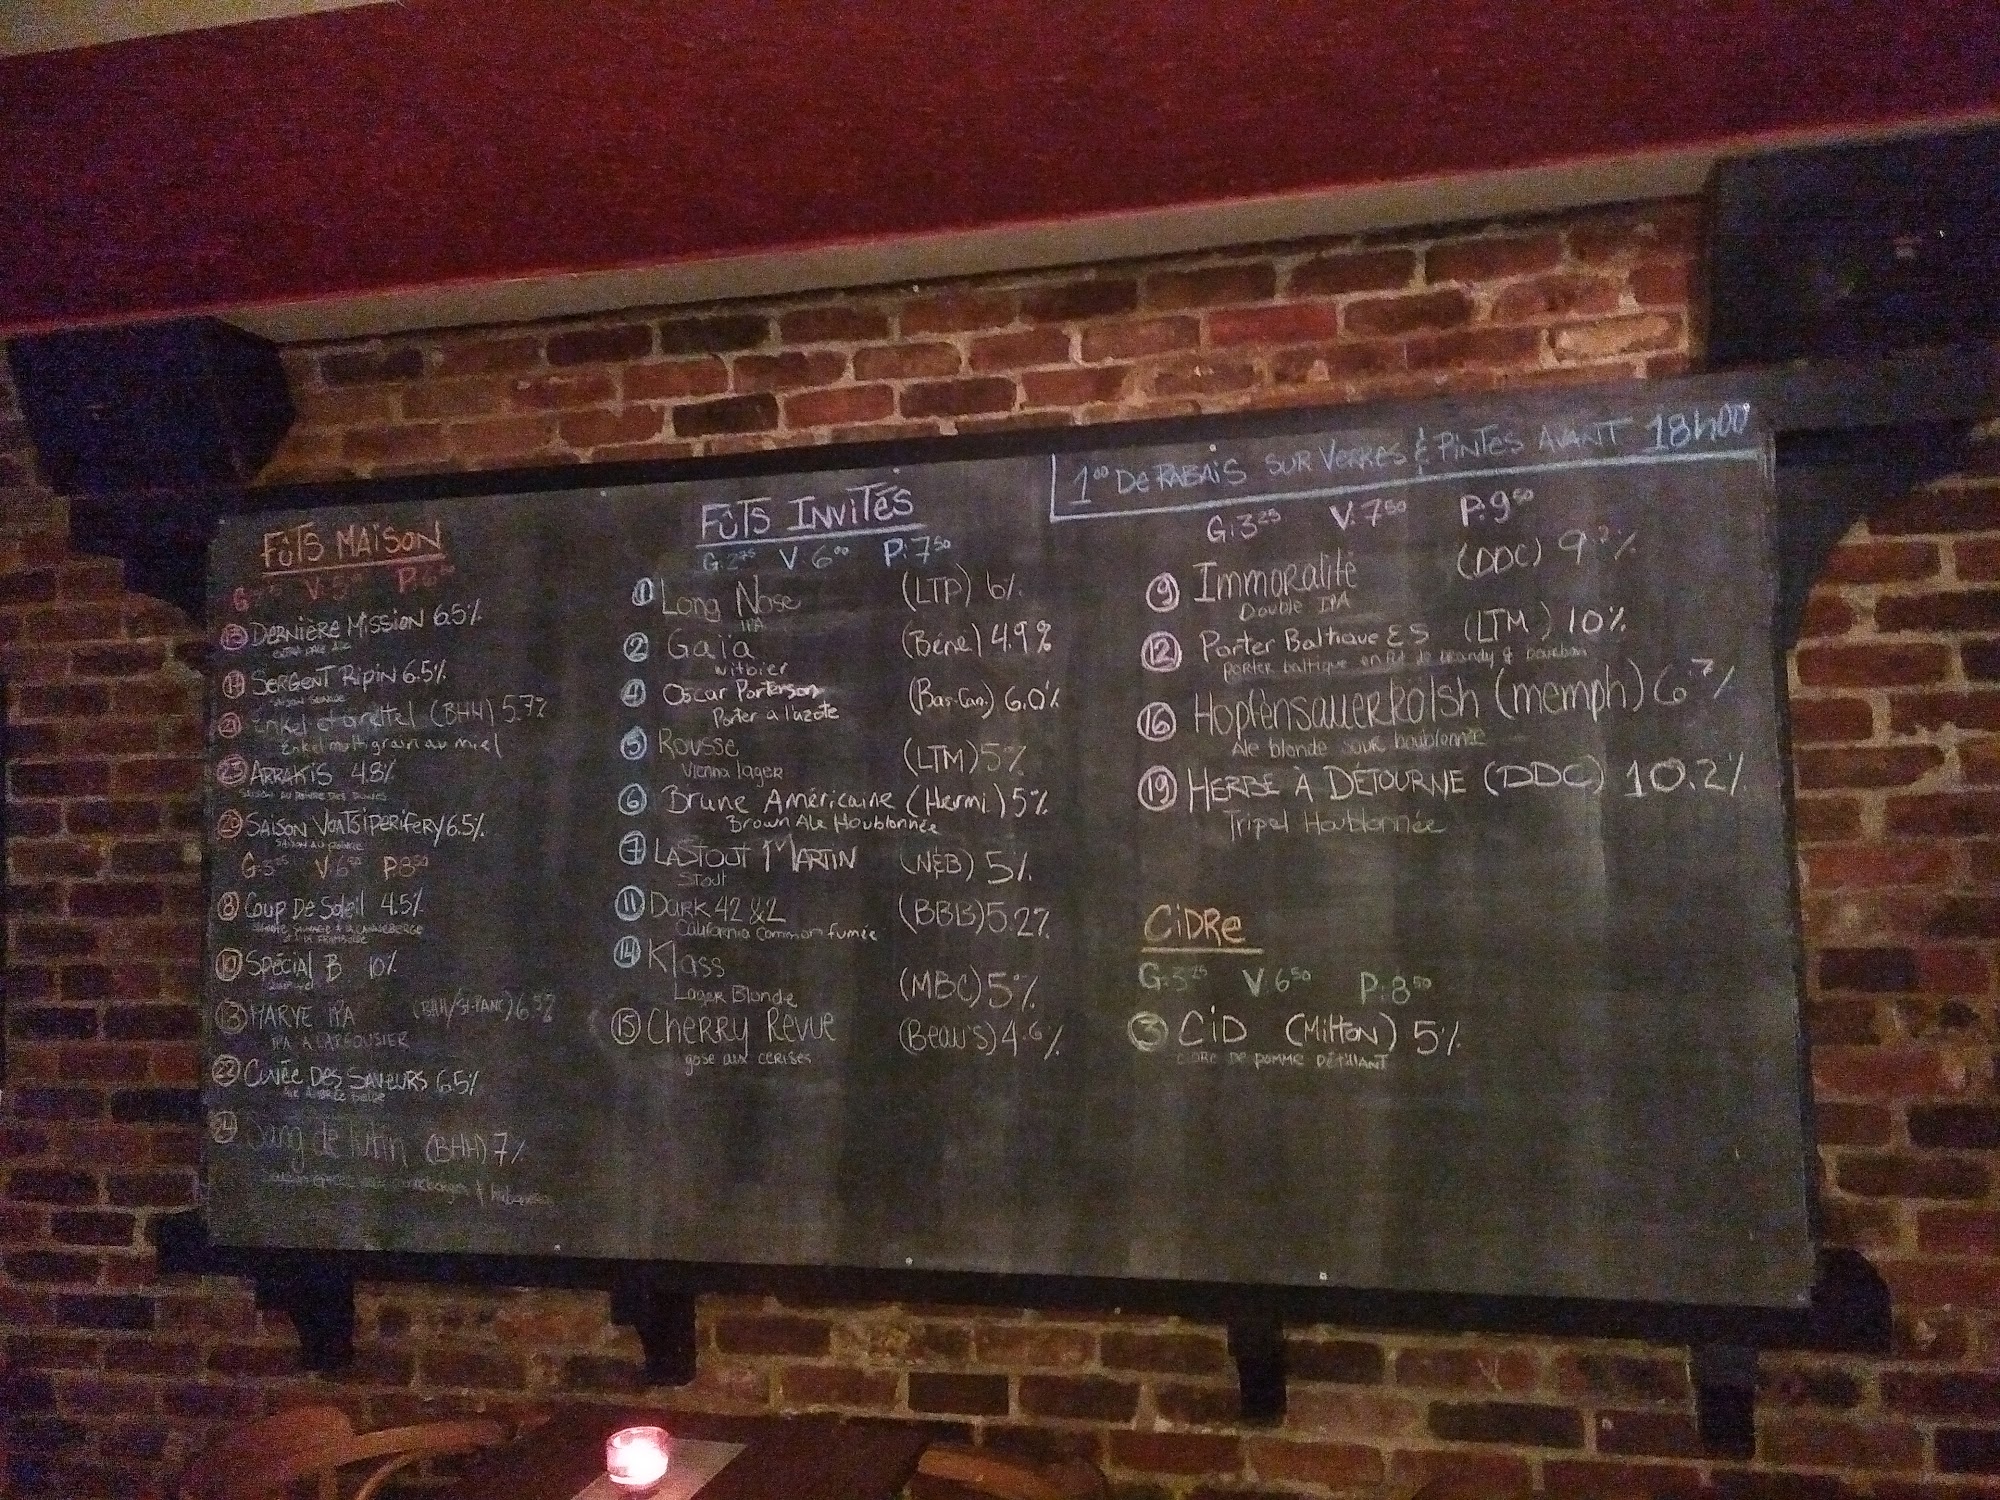 FûTS MAISON
V:5 P:6
DERNIÈRE MISSION 6.5%
SERGENT RIPIN 6.5%
Enkel et Grettel (BHH) 5.7%
Enkel multigrain au miel
23 ARRAKIS 4.8%
SAISON AU POIVRE DES DUNES
SAISON VOATSIPERIFERY 6.5%
SAISON AU POIVRE
G:3²⁵ V:6⁵⁰ P:8⁵⁰
8 COUP DE SOLEIL 4.5%
10 SPÉCIAL B 10%
IPA (BHH/ST-PANC) 6.5%
22 CUVÉE DES SAVEURS 6.5%
24 Sang de lutin (BHH) 7%
FûTS INVITÉS
G:2⁷⁵ V:6⁰⁰ P:7⁵⁰
1 Long Nose (LTP) 6%
IPA
2 Gaïa (Béné) 4.9%
witbier
4 Oscar Porterson (Bas-Can.) 6.0%
Porter à l'azote
5 Rousse (LTM) 5%
Vienna lager
6 Brune Américaine (Hermi) 5%
Brown Ale Houblonnée
7 LASTOUT MARTIN (N&B) 5%
Stout
11 Dark 42 & 2 (BBB) 5.2%
California Common fumée
14 Klass (MBC) 5%
Lager Blonde
15 Cherry Revue (Beau's) 4.6%
gose aux cerises
1⁰⁰ DE RABAIS SUR VERRES & PINTES AVANT 18h00
G:3²⁵ V:7⁵⁰ P:9⁵⁰
9 Immoralité (DDC) 9.2%
Double IPA
12 Porter Baltique ES (LTM) 10%
porter baltique en fût de brandy & bourbon
16 Hopfensauerkölsh (memph) 6.7%
Ale blonde sour houblonnée
19 HERBE À DÉTOURNE (DDC) 10.2%
Tripel Houblonnée
CiDRe
G:3²⁵ V:6⁵⁰ P:8⁵⁰
3 CiD (Milton) 5%
CIDRE DE POMME PÉTILLANT